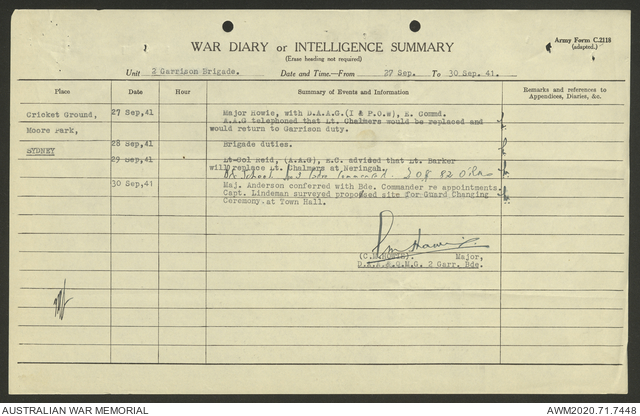 Army Form C.2118
(adapted.)
WAR DIARY or INTELLIGENCE SUMMARY
(Erase heading not required)
Unit 2 Garrison Brigade. Date and Time.—From 27 Sep. To 30 Sep. 41.
Place Date Hour Summary of Events and Information Remarks and references to Appendices, Diaries, &c.
Cricket Ground, 27 Sep,41 Major Howie, with D.A.A.G.(I & P.O.W), E. Commd.
A.A.G telephoned that Lt. Chalmers would be replaced and
Moore Park, would return to Garrison duty.
SYDNEY 28 Sep,41 Brigade duties.
29 Sep,41 Lt-Col Reid, (A.A.G), E.C. advised that Lt. Barker
will replace Lt. Chalmers at Neringah.
School
30 Sep,41 Maj. Anderson conferred with Bde. Commander re appointments
Capt. Lindeman surveyed proposed site for Guard Changing
Ceremony at Town Hall.
Major,
D.A.A.&.Q.M.G. 2 Garr. Bde.
AUSTRALIAN WAR MEMORIAL AWM2020.71.7448